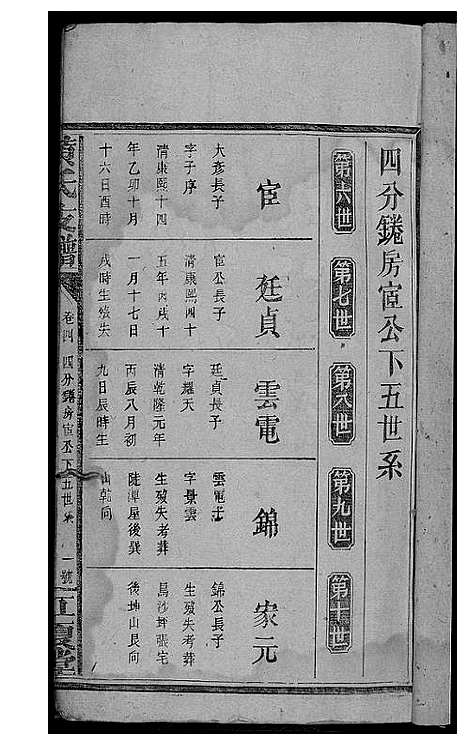 四分鐉房宦公下五世系
第六世
第七世
第八世
第九世
第十世
宦
大彥長子
字子序
清康熙十四
年乙卯十月
十六日酉時
廷貞
宦公長子
清康熙四十
五年丙戌十
一月十七日
戌時生歿失
雲電
廷貞長子
字耀天
清乾隆元年
丙辰八月初
九日辰時生
錦
雲電子
字景雲
生歿失考葬
陡潭屋後巽
山乾向
家元
錦公長子
生歿失考葬
烏沙坪張宅
後坤山艮向
黃氏支譜
卷四
四分鐉房宦公下五世系
一號